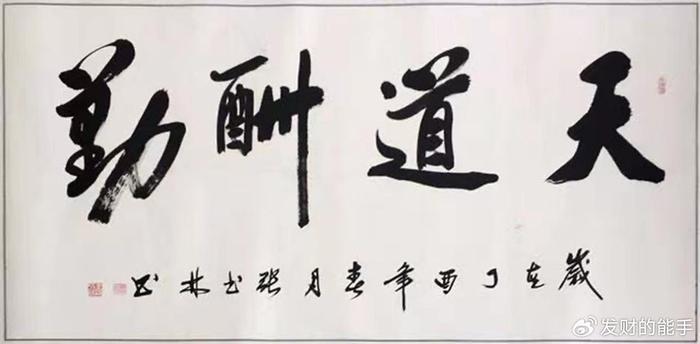 天道酬勤
歲在丁酉年春月张林书
@发财的能手